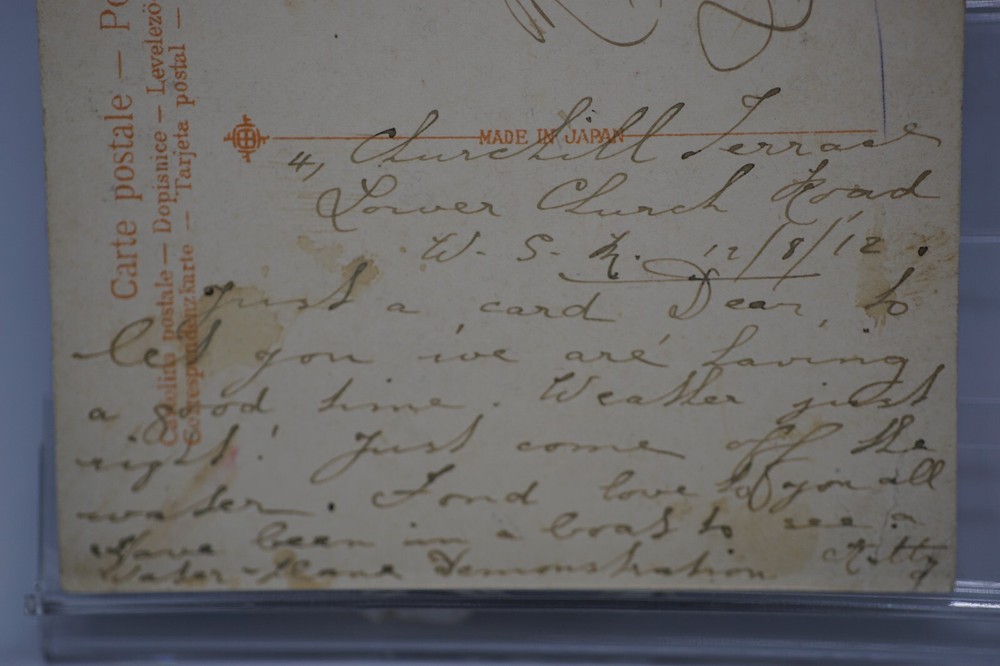 Carte postale — Po
Cartolina postale — Dopisnice — Levelező-
Correspondenzkarte — Tarjeta postal —
MADE IN JAPAN
4, Churchill Terrace
Lower Church Road
W. S. M. 12/8/12.
Just a card Dear, to
let you we are having
a good time. Weather just
right! Just come off the
water. Fond love to you all
Have been in a boat to see a
Water-plane Demonstration